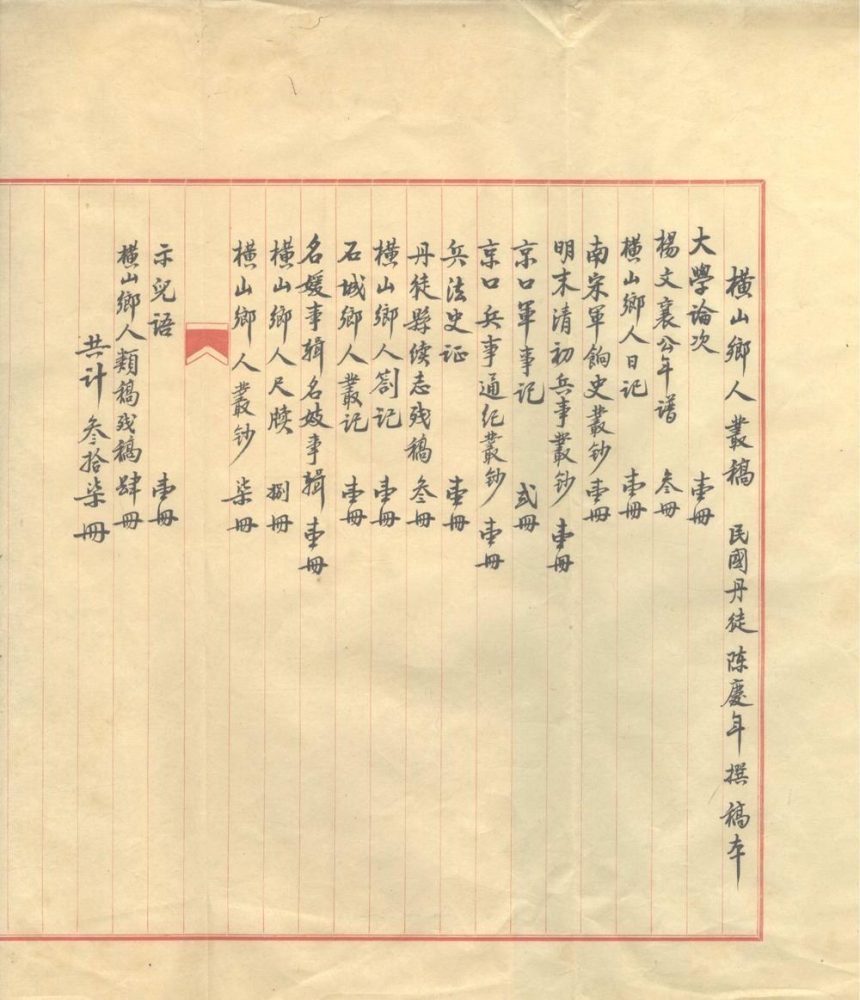 橫山鄉人叢稿 民國丹徒陈慶年撰 稿本
大學論次 壹冊
楊文襄公年譜 叁冊
橫山鄉人日记 壹冊
南宋軍餉史叢鈔 壹冊
明末清初兵事叢鈔 壹冊
京口軍事記 弍冊
京口兵事通纪叢鈔 壹冊
兵法史证 壹冊
丹徒縣续志残稿 叁冊
橫山鄉人劄记 壹冊
石城鄉人叢记 壹冊
名媛事輯名妓事輯 壹冊
橫山鄉人尺牘 捌冊
橫山鄉人叢鈔 柒冊
示兒语 壹冊
橫山鄉人類稿残稿 肆冊
共计 叁拾柒冊